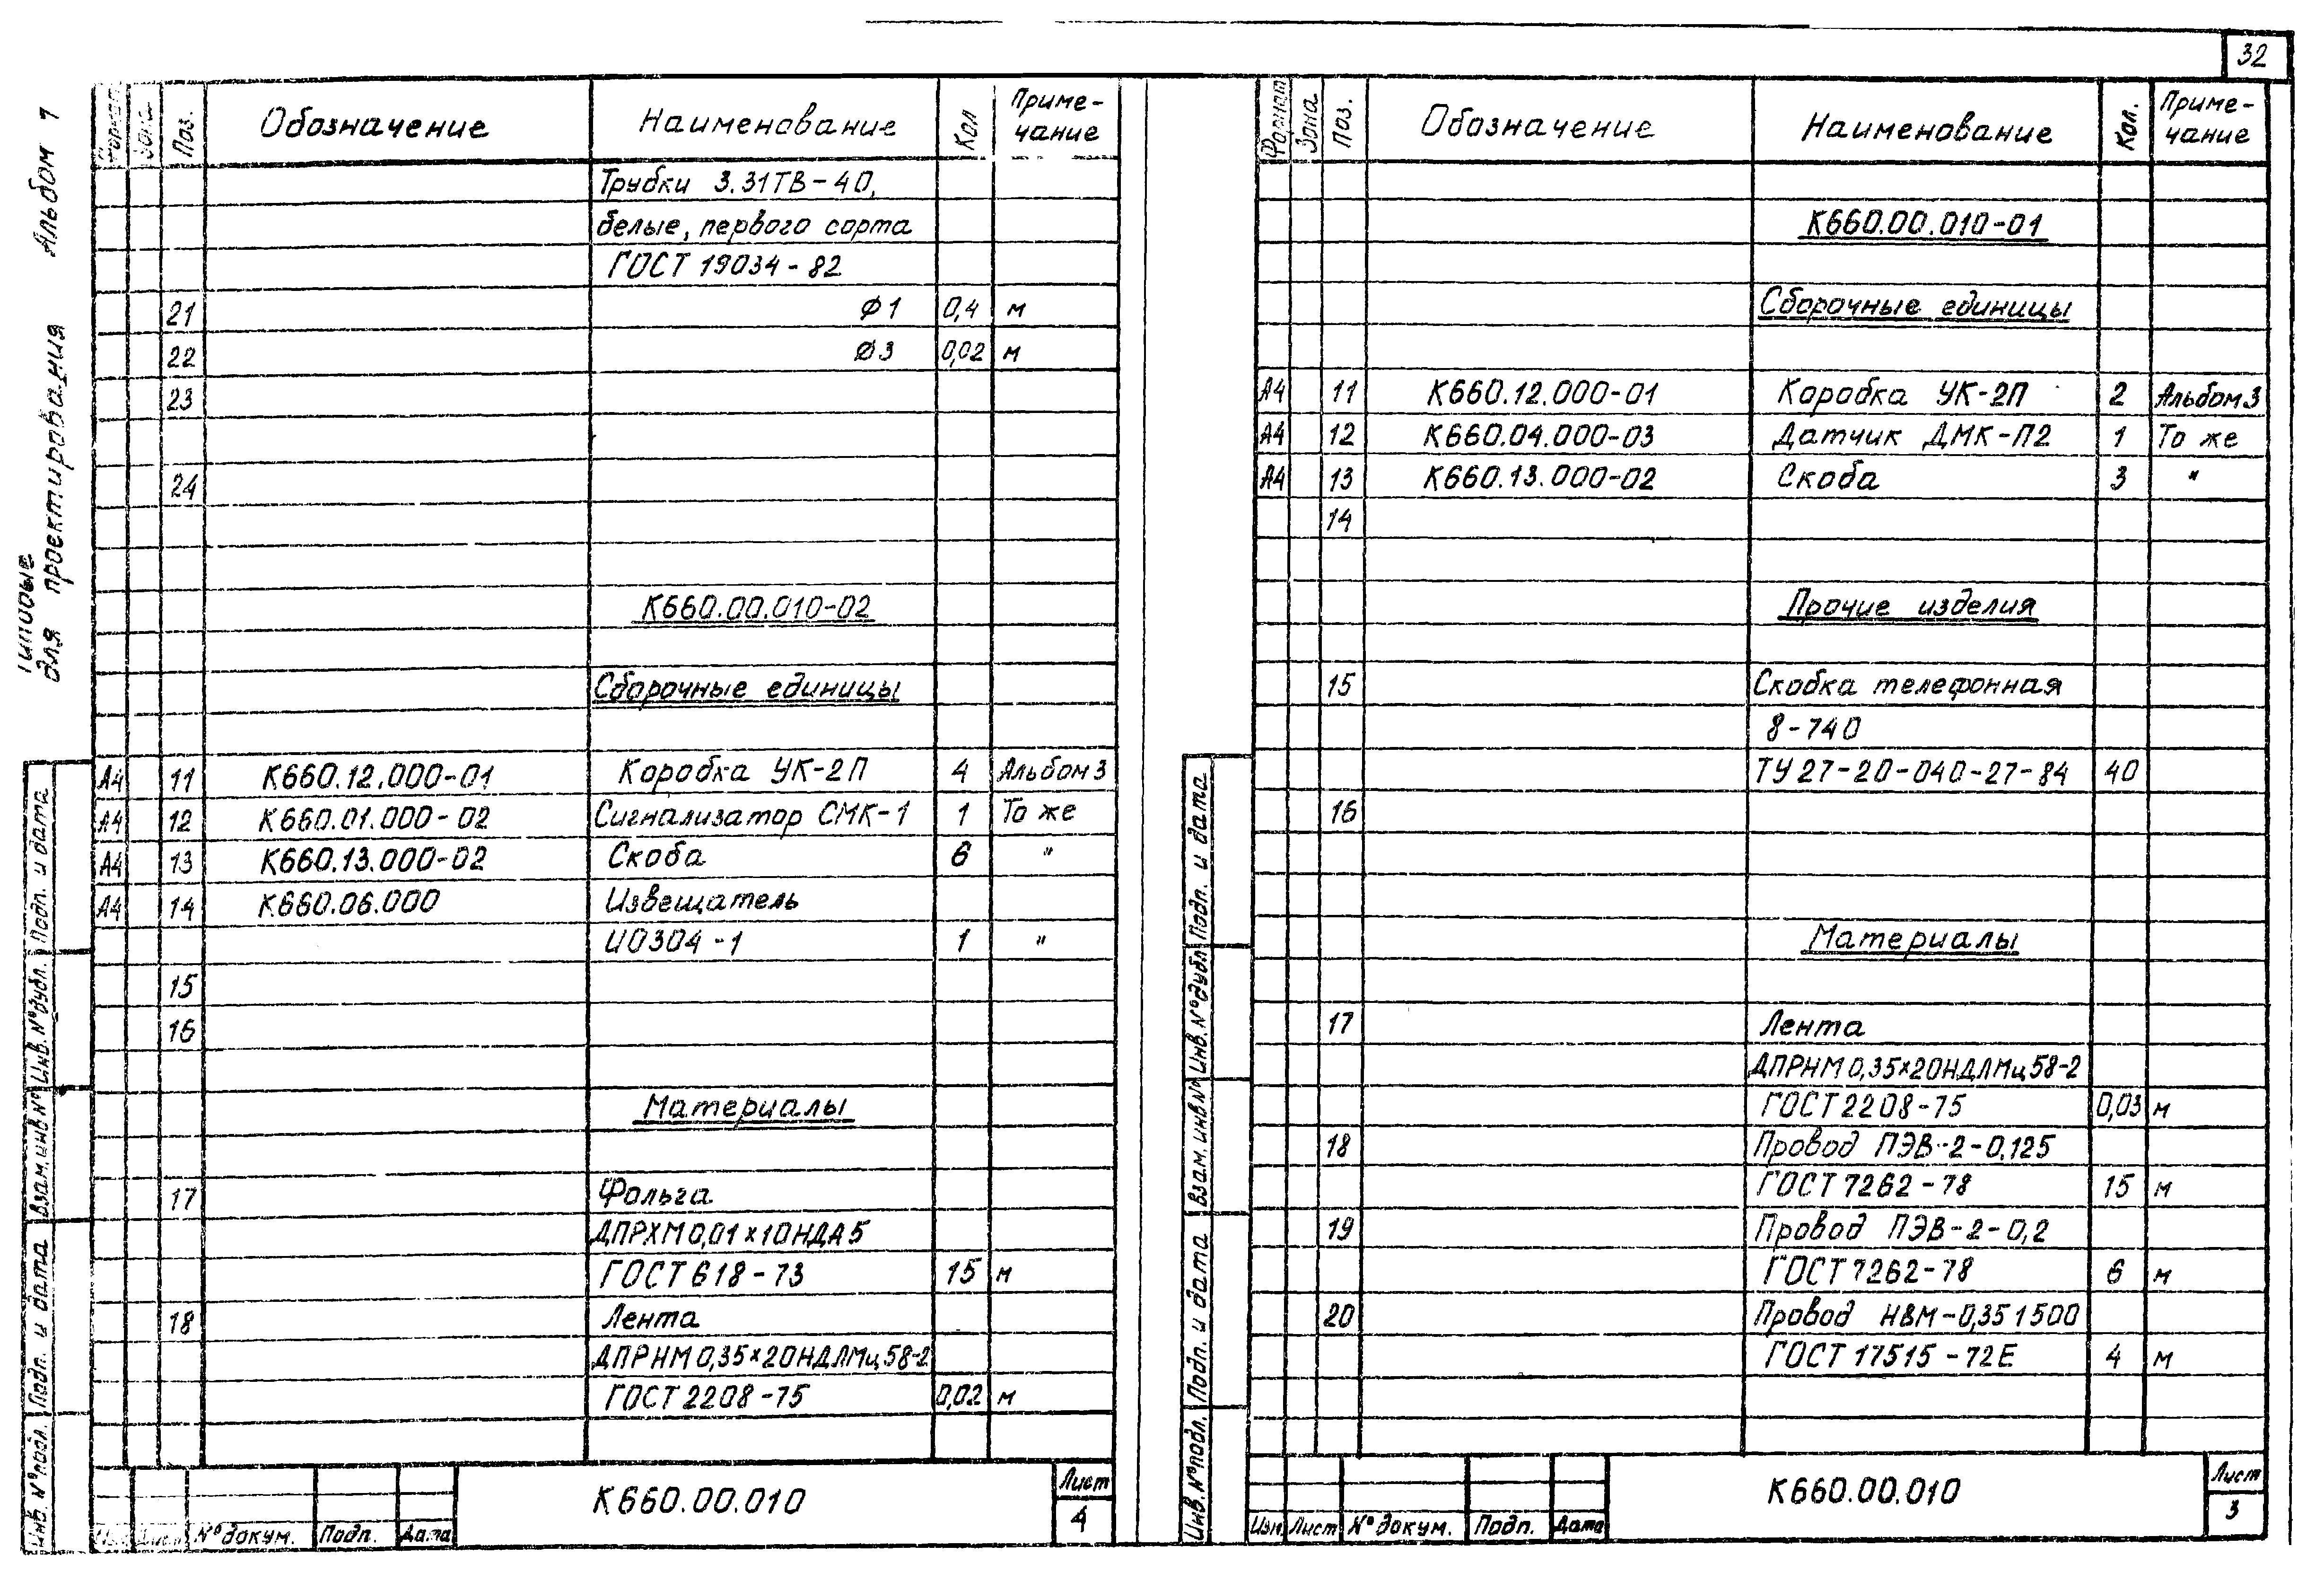 32
Альбом 1
Типовые
для проектирования
Формат Зона Поз. Обозначение Наименование Кол Приме-
чание
Трубки 3.31ТВ-40,
белые, первого сорта
ГОСТ 19034-82
21 Ø1 0,4 м
22 Ø3 0,02 м
23
24
К660.00.010-02
Сборочные единицы
А4 11 К660.12.000-01 Коробка УК-2П 4 Альбом 3
А4 12 К660.01.000-02 Сигнализатор СМК-1 1 То же
А4 13 К660.13.000-02 Скоба 6 "
А4 14 К660.06.000 Извещатель
ИО304-1 1 "
15
16
Материалы
17 Фольга
ДПРХМ 0,01×10НДА5
ГОСТ 618-73 15 м
18 Лента
ДПРНМ 0,35×20НДЛМц58-2
ГОСТ 2208-75 0,02 м
Изм Лист № докум. Подп. Дата
К660.00.010
Лист
4
Инв. № подл. Подп. и дата Взам. инв № Инв. № дубл. Подп. и дата
Формат Зона Поз. Обозначение Наименование Кол. Приме-
чание
К660.00.010-01
Сборочные единицы
А4 11 К660.12.000-01 Коробка УК-2П 2 Альбом 3
А4 12 К660.04.000-03 Датчик ДМК-П2 1 То же
А4 13 К660.13.000-02 Скоба 3 "
14
Прочие изделия
15 Скобка телефонная
8-740
ТУ 27-20-040-27-84 40
16
Материалы
17 Лента
ДПРНМ 0,35×20НДЛМц58-2
ГОСТ 2208-75 0,03 м
18 Провод ПЭВ-2-0,125
ГОСТ 7262-78 15 м
19 Провод ПЭВ-2-0,2
ГОСТ 7262-78 6 м
20 Провод НВМ-0,35 1500
ГОСТ 17515-72Е 4 м
Изм Лист № докум. Подп. Дата
К660.00.010
Лист
3
Инв. № подл. Подп. и дата Взам. инв № Инв. № дубл Подп. и дата